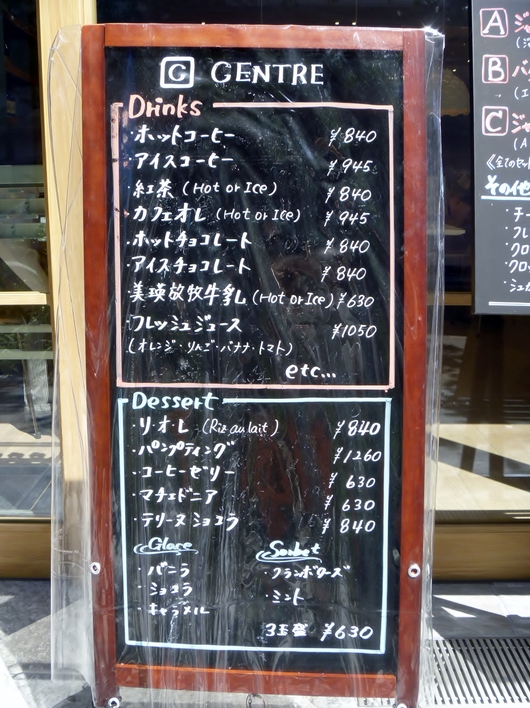 C CENTRE
Drinks
・ホットコーヒー ¥840
・アイスコーヒー ¥945
・紅茶 (Hot or Ice) ¥840
・カフェオレ (Hot or Ice) ¥945
・ホットチョコレート ¥840
・アイスチョコレート ¥840
・美瑛放牧牛乳 (Hot or Ice) ¥630
・フレッシュジュース ¥1050
(オレンジ・りんご・バナナ・トマト)
etc...
Dessert
・リ・オ・レ (Riz au lait) ¥840
・パンプディング ¥1260
・コーヒーゼリー ¥630
・マチェドーニア ¥630
・テリーヌ ショコラ ¥840
Glace
・バニラ
・ショコラ
・キャラメル
Sorbet
・フランボワーズ
・ミント
3玉盛 ¥630
A
B
C